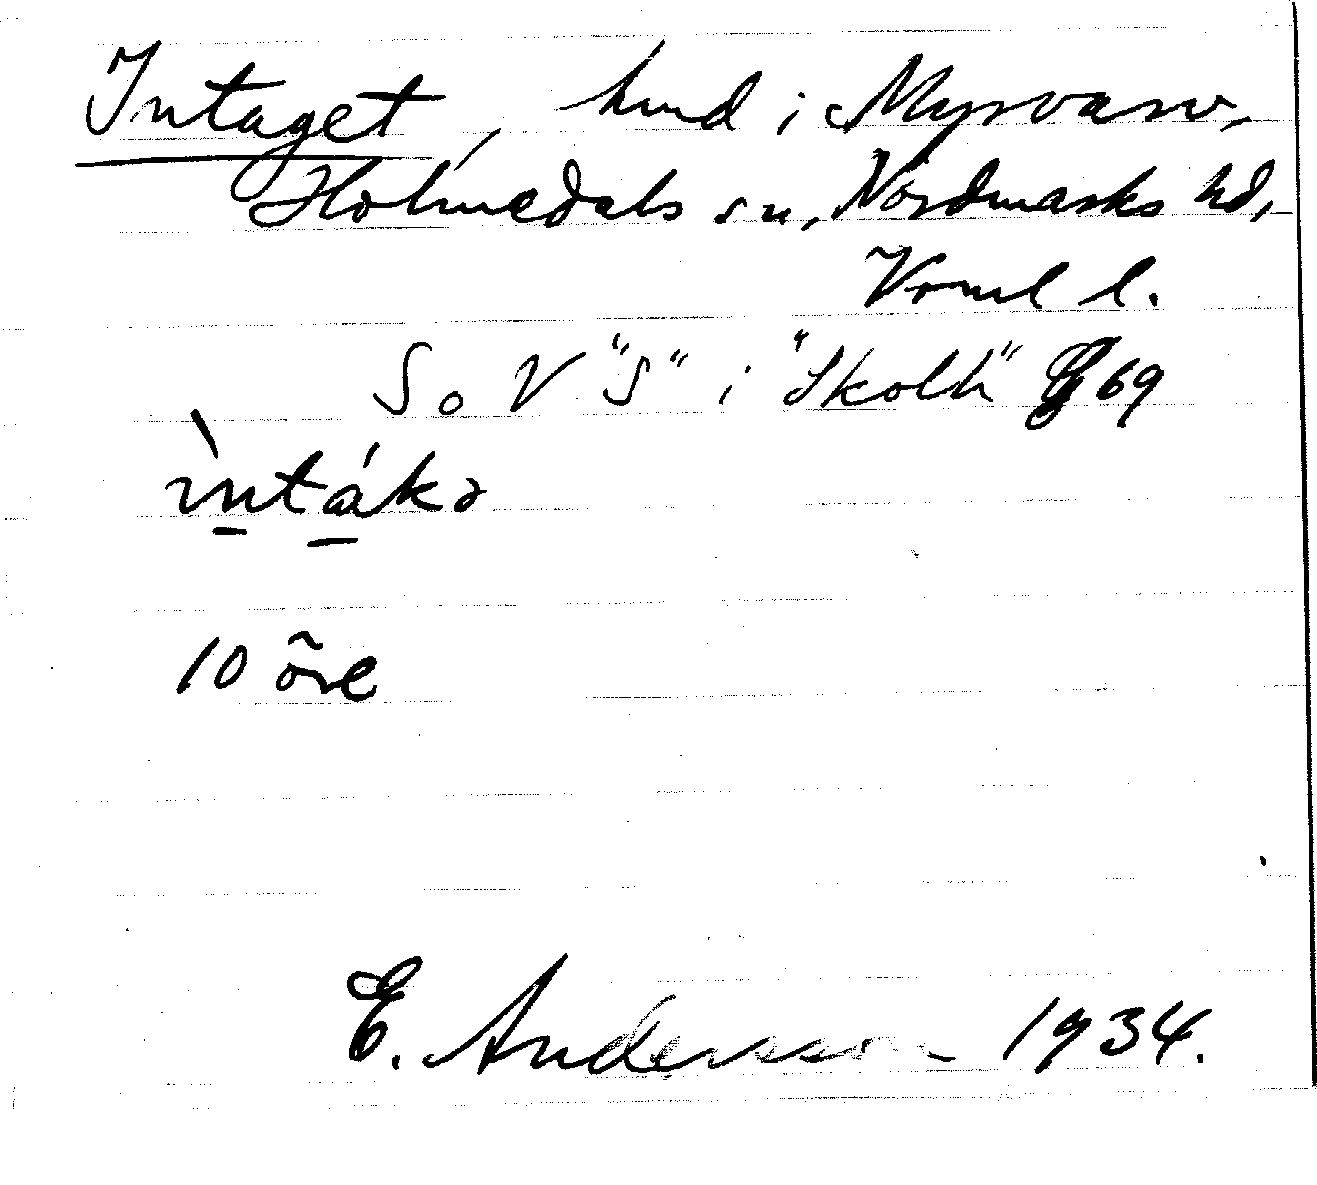 Intaget, hmd i Myrvarv,
Holmedals sn, Nordmarks hd,
Vrml l.
S o V "S" i "Skolh" G 69
ìntákə
10 öre
E. Andersson 1934.